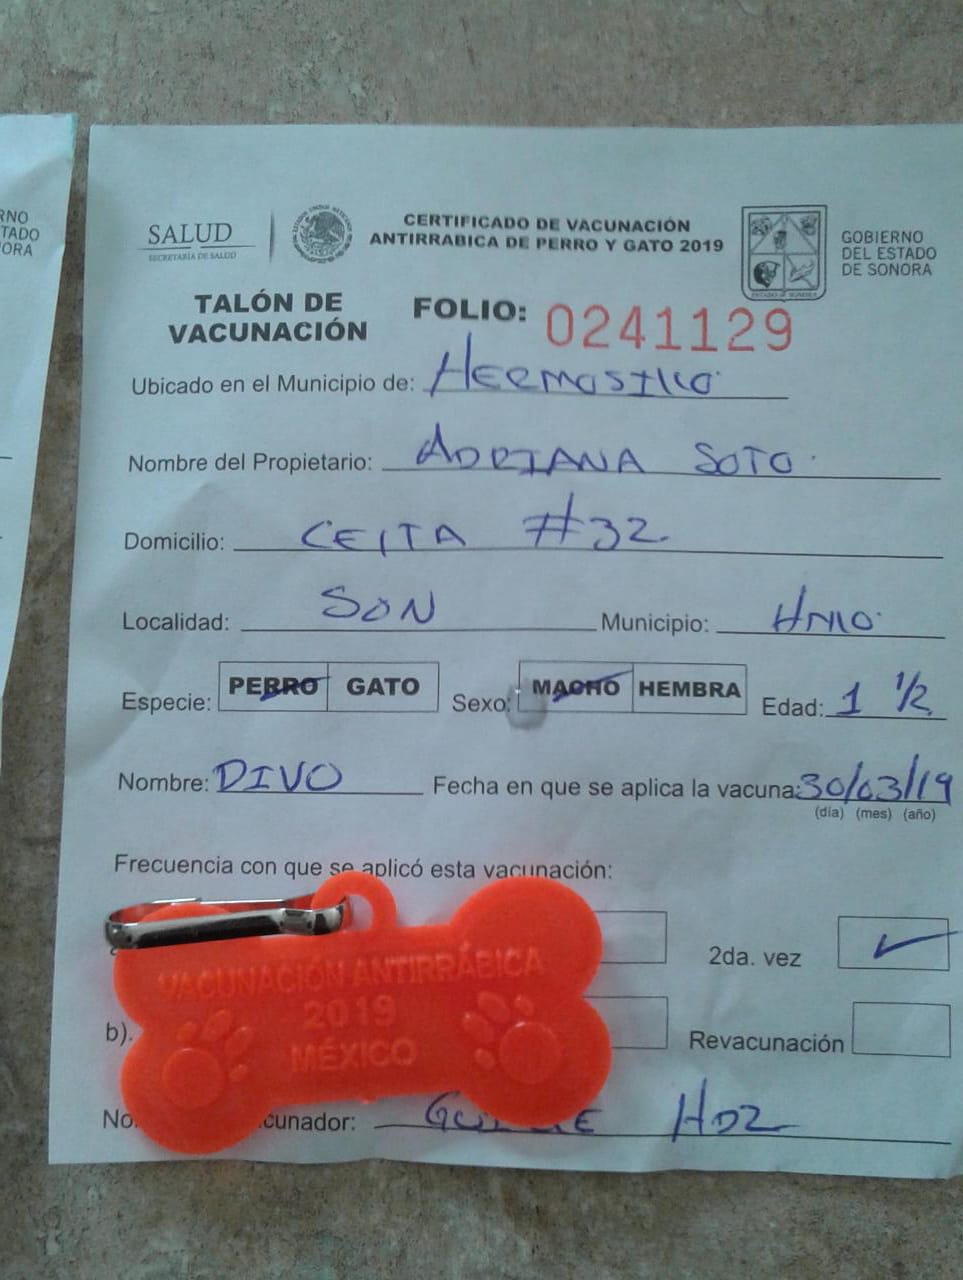 RNO
TADO
ORA
SALUD
SECRETARÍA DE SALUD
ESTADOS UNIDOS MEXICANOS
CERTIFICADO DE VACUNACIÓN
ANTIRRABICA DE PERRO Y GATO 2019
ESTADO DE SONORA
GOBIERNO
DEL ESTADO
DE SONORA
TALÓN DE
VACUNACIÓN
FOLIO: 0241129
Ubicado en el Municipio de: HERMOSILLO
Nombre del Propietario: ADRIANA SOTO
Domicilio: CEITA #32
Localidad: SON Municipio: HMO.
Especie: PERRO GATO Sexo: MACHO HEMBRA Edad: 1 1/2
Nombre: DIVO Fecha en que se aplica la vacuna: 30/03/19
(día) (mes) (año)
Frecuencia con que se aplicó esta vacunación:
2da. vez
VACUNACIÓN ANTIRRÁBICA
2019
MÉXICO
b).
Revacunación
No cunador: HDZ